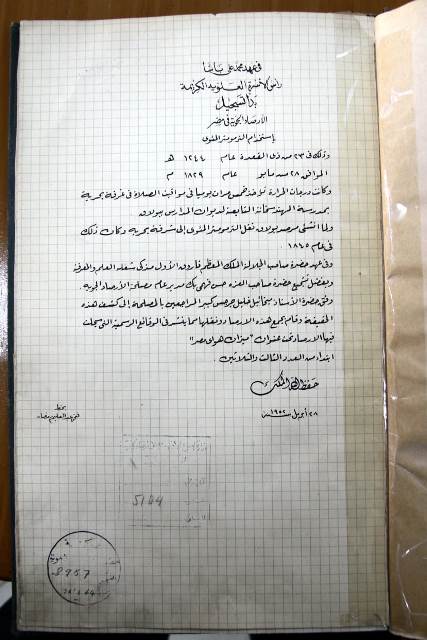 فى عهد محمد على باشا
رأس الأسرة العلوية الكريمة
بدأ تسجيل
الأرصاد الجوية فى مصر
باستخدام الترمومتر المئوى
وذلك فى ٢٣ من ذى القعدة عام ١٢٤٤ هـ
الموافق ٢٨ من مايو عام ١٨٢٩ م
وكانت درجات الحرارة تؤخذ خمس مرات يوميا فى مواقيت الصلاة فى غرفة بحرية
بمدرسة المهندسخانة التابعة لديوان المدارس ببولاق
ولما أنشئ مرصد بولاق نقل الترمومتر المئوى إلى شرفة بحرية وكان ذلك
فى عام ١٨٤٥
وفى عهد حضرة صاحب الجلالة الملك المعظم فاروق الأول مذكى شعلة العلم والمعرفة
وبفضل تشجيع حضرة صاحب العزة حسن فهمى بك مدير عام مصلحة الأرصاد الجوية
وفق حضرة الأستاذ ميخائيل خليل جرجس كبير المراجعين بالمصلحة إلى كشف هذه
الحقيقة وقام بجمع هذه الأرصاد ونقلها مما ينشر فى الوقائع الرسمية التى سجلت
فيها الأرصاد تحت عنوان "ميزان هواى مصر"
ابتداء من العدد الثالث والثلاثين .
حفظ الله الملك
٢٨ أبريل سنة ١٩٥٢
بخط
5164
8957